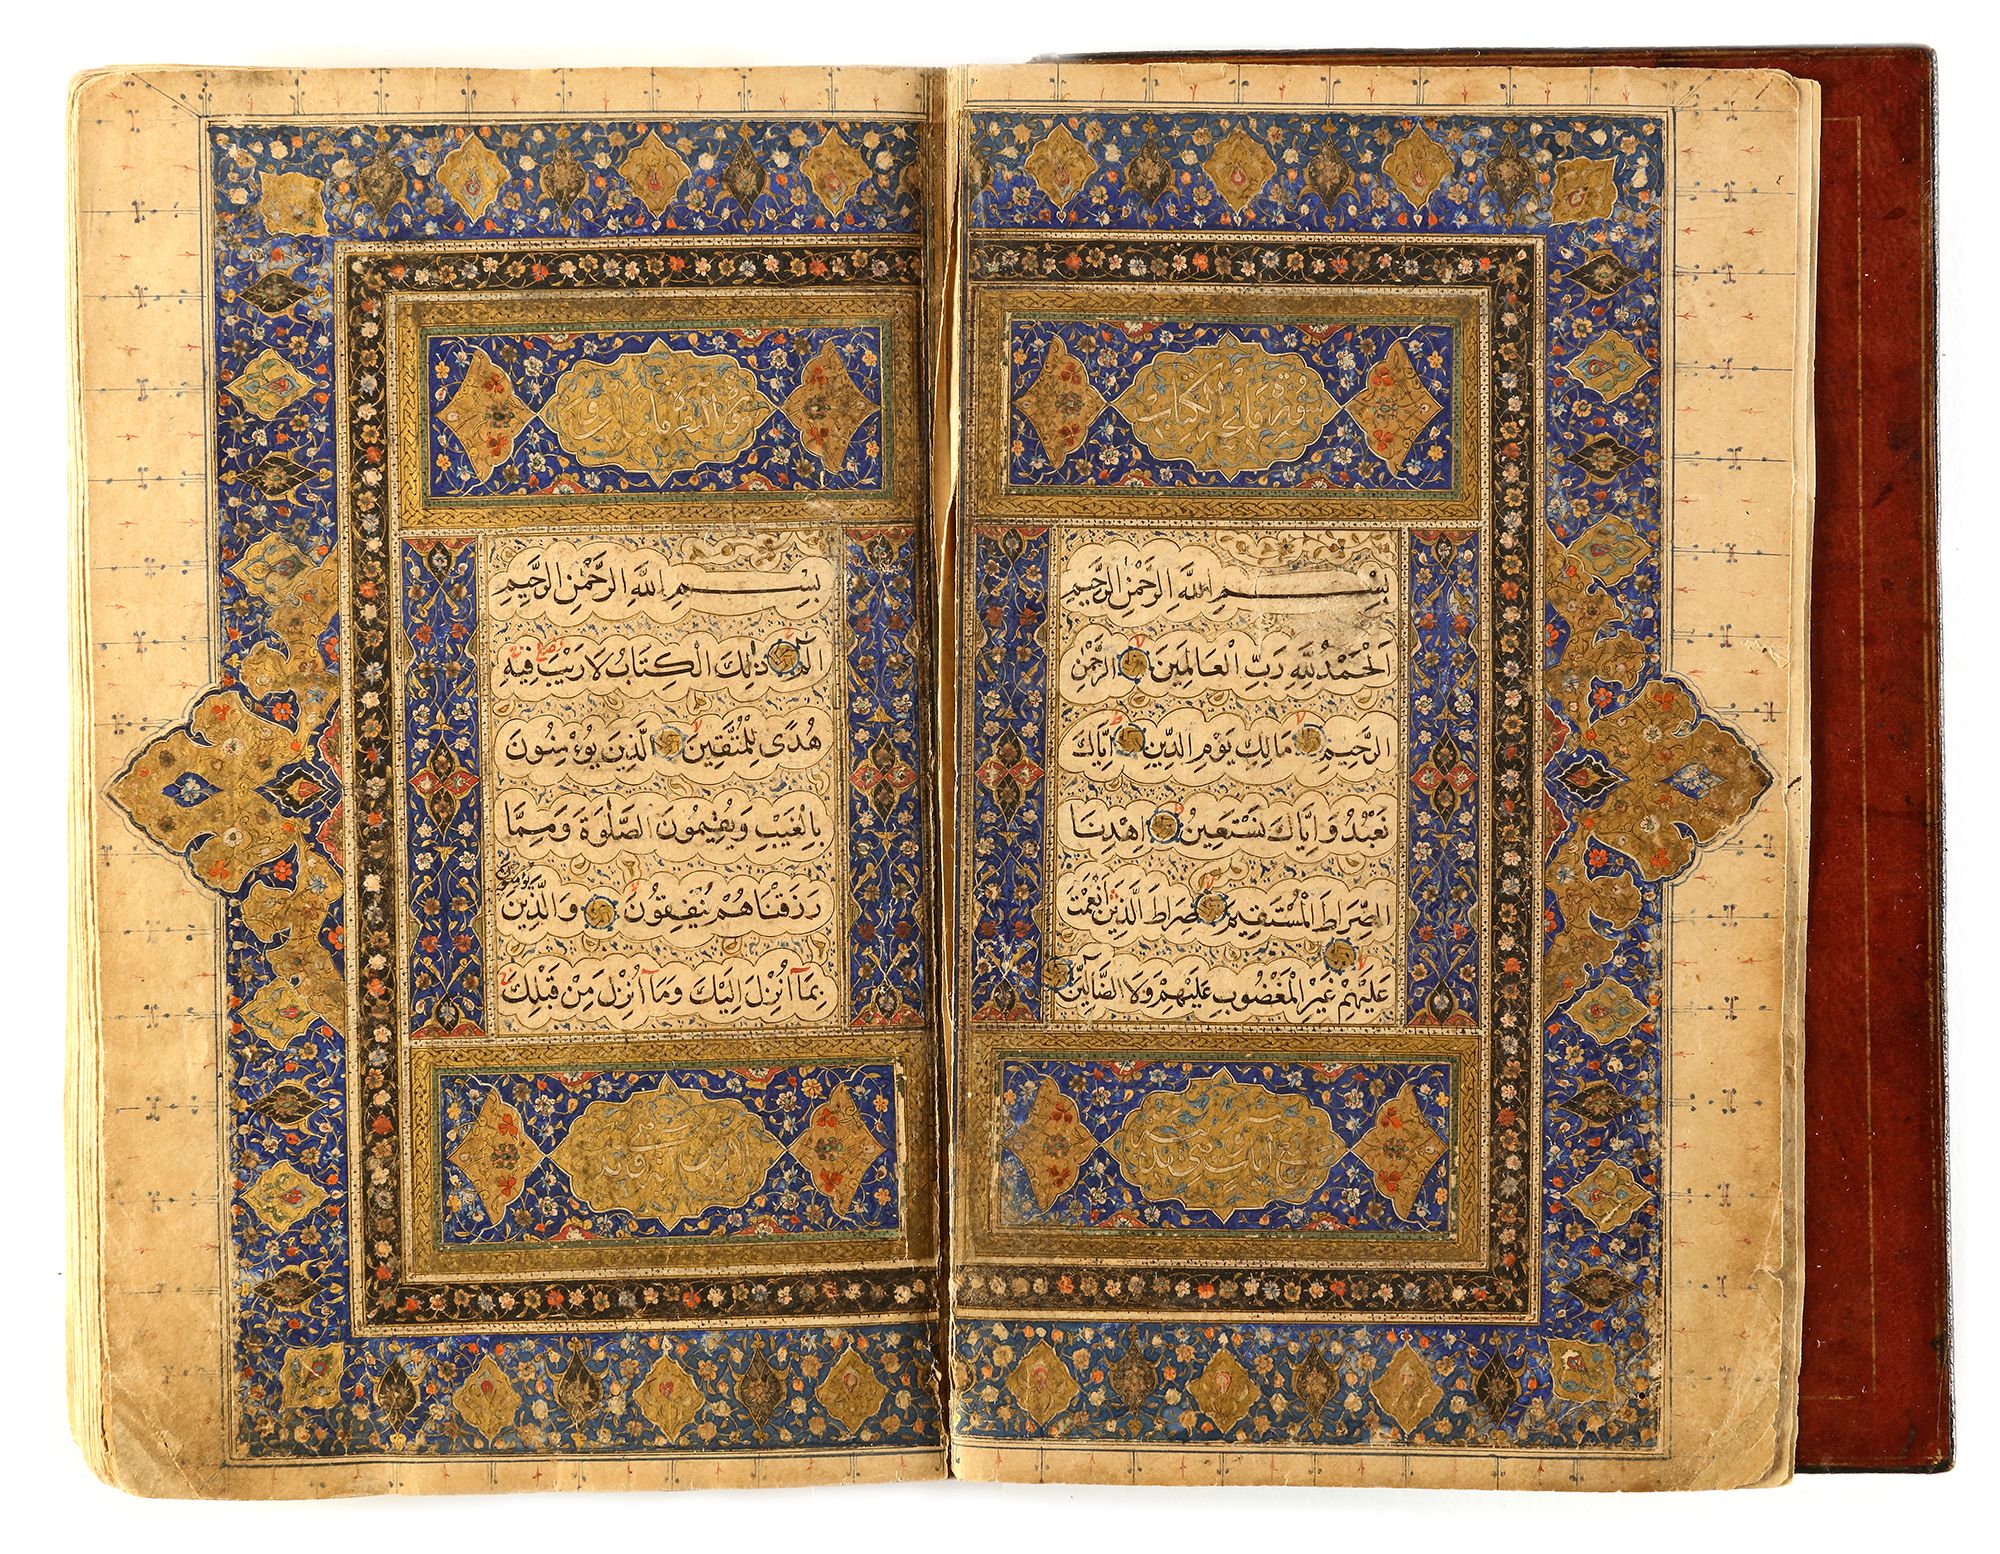 سورة فاتحة الكتاب
بِسْمِ اللَّهِ الرَّحْمٰنِ الرَّحِيمِ
اَلْحَمْدُ لِلَّهِ رَبِّ الْعَالَمِينَ الرَّحْمٰنِ
الرَّحِيمِ مَالِكِ يَوْمِ الدِّينِ اِيَّاكَ
نَعْبُدُ وَاِيَّاكَ نَسْتَعِينُ اِهْدِنَا
الصِّرَاطَ الْمُسْتَقِيمَ صِرَاطَ الَّذِينَ اَنْعَمْتَ
عَلَيْهِمْ غَيْرِ الْمَغْضُوبِ عَلَيْهِمْ وَلَا الضَّآلِّينَ
سبع آيات
بِسْمِ اللَّهِ الرَّحْمٰنِ الرَّحِيمِ
الٓمٓ ذٰلِكَ الْكِتَابُ لَا رَيْبَ فِيهِ
هُدًى لِلْمُتَّقِينَ الَّذِينَ يُؤْمِنُونَ
بِالْغَيْبِ وَيُقِيمُونَ الصَّلٰوةَ وَمِمَّا
رَزَقْنَاهُمْ يُنْفِقُونَ وَالَّذِينَ
يؤمنون
بِمَآ اُنْزِلَ اِلَيْكَ وَمَآ اُنْزِلَ مِنْ قَبْلِكَ